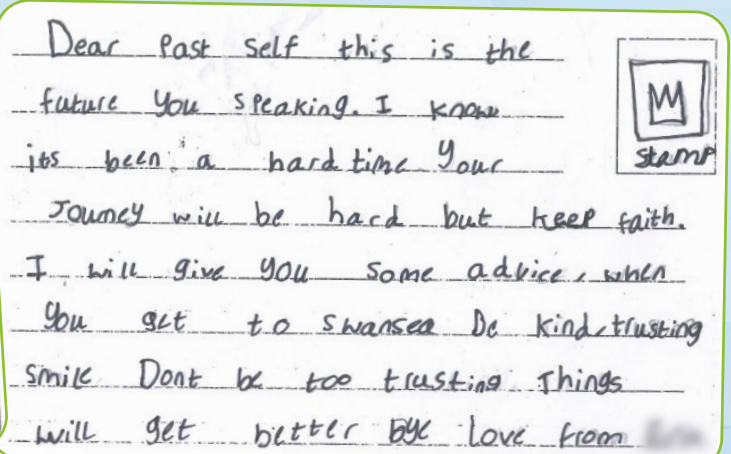 Dear Past self this is the
future you speaking. I know
its been a hard time Your
Journey will be hard but keep faith.
stamp
I will give you some advice, when
you get to swansea Be kind, trusting
smile Dont be too trusting Things
will get better bye love from